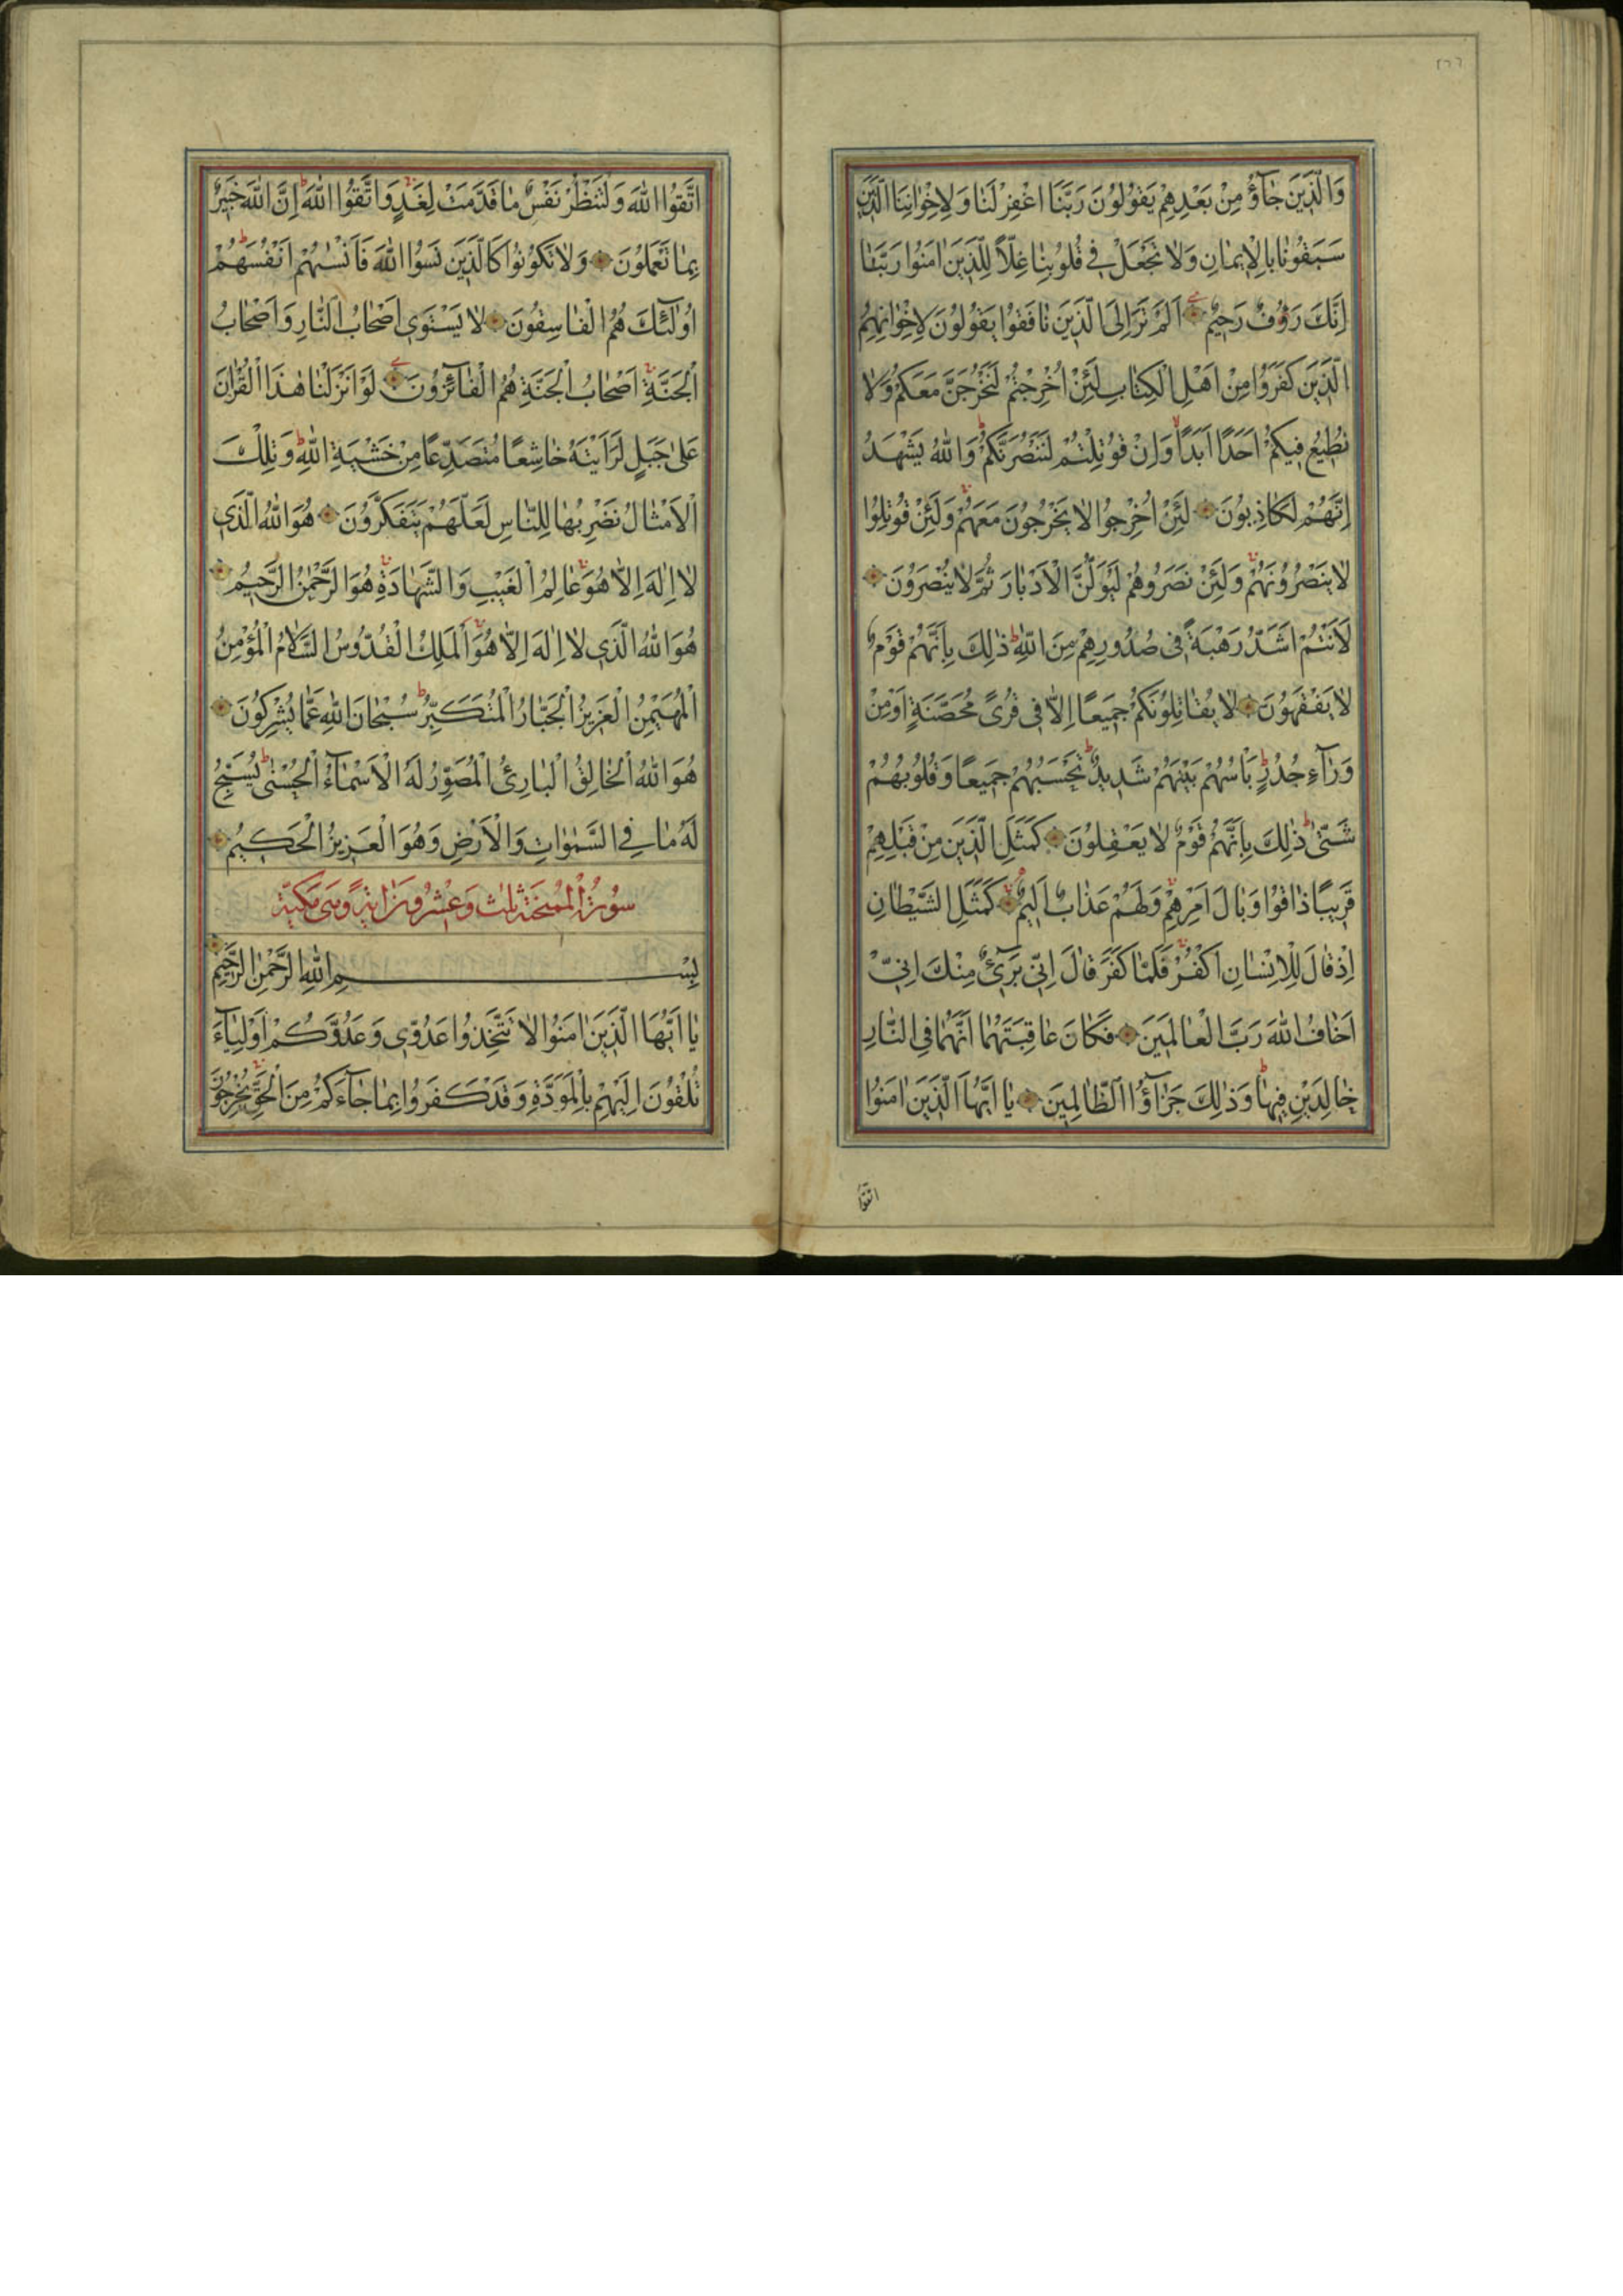 ٢٦٦
وَالَّذِينَ جَآؤُ مِنْ بَعْدِهِمْ يَقُولُونَ رَبَّنَا اغْفِرْ لَنَا وَلِاِخْوَانِنَا الَّذِينَ
سَبَقُونَا بِالْاِيمَانِ وَلَا تَجْعَلْ فِي قُلُوبِنَا غِلّاً لِلَّذِينَ اٰمَنُوا رَبَّنَا
اِنَّكَ رَؤُفٌ رَحِيمٌ اَلَمْ تَرَ اِلَى الَّذِينَ نَافَقُوا يَقُولُونَ لِاِخْوَانِهِمُ
الَّذِينَ كَفَرُوا مِنْ اَهْلِ الْكِتَابِ لَئِنْ اُخْرِجْتُمْ لَنَخْرُجَنَّ مَعَكُمْ وَلَا
نُطِيعُ فِيكُمْ اَحَدًا اَبَدًا وَاِنْ قُوتِلْتُمْ لَنَنْصُرَنَّكُمْ وَاللّٰهُ يَشْهَدُ
اِنَّهُمْ لَكَاذِبُونَ لَئِنْ اُخْرِجُوا لَا يَخْرُجُونَ مَعَهُمْ وَلَئِنْ قُوتِلُوا
لَا يَنْصُرُونَهُمْ وَلَئِنْ نَصَرُوهُمْ لَيُوَلُّنَّ الْاَدْبَارَ ثُمَّ لَا يُنْصَرُونَ
لَاَنْتُمْ اَشَدُّ رَهْبَةً فِي صُدُورِهِمْ مِنَ اللّٰهِ ذٰلِكَ بِاَنَّهُمْ قَوْمٌ
لَا يَفْقَهُونَ لَا يُقَاتِلُونَكُمْ جَمِيعًا اِلَّا فِي قُرًى مُحَصَّنَةٍ اَوْ مِنْ
وَرَآءِ جُدُرٍ بَاْسُهُمْ بَيْنَهُمْ شَدِيدٌ تَحْسَبُهُمْ جَمِيعًا وَقُلُوبُهُمْ
شَتّٰى ذٰلِكَ بِاَنَّهُمْ قَوْمٌ لَا يَعْقِلُونَ كَمَثَلِ الَّذِينَ مِنْ قَبْلِهِمْ
قَرِيبًا ذَاقُوا وَبَالَ اَمْرِهِمْ وَلَهُمْ عَذَابٌ اَلِيمٌ كَمَثَلِ الشَّيْطَانِ
اِذْ قَالَ لِلْاِنْسَانِ اكْفُرْ فَلَمَّا كَفَرَ قَالَ اِنِّي بَرِيٓئٌ مِنْكَ اِنِّي
اَخَافُ اللّٰهَ رَبَّ الْعَالَمِينَ فَكَانَ عَاقِبَتَهُمَا اَنَّهُمَا فِي النَّارِ
خَالِدَيْنِ فِيهَا وَذٰلِكَ جَزَآؤُا الظَّالِمِينَ يَا اَيُّهَا الَّذِينَ اٰمَنُوا
اتَّقُوا
اتَّقُوا اللّٰهَ وَلْتَنْظُرْ نَفْسٌ مَا قَدَّمَتْ لِغَدٍ وَاتَّقُوا اللّٰهَ اِنَّ اللّٰهَ خَبِيرٌ
بِمَا تَعْمَلُونَ وَلَا تَكُونُوا كَالَّذِينَ نَسُوا اللّٰهَ فَاَنْسٰيهُمْ اَنْفُسَهُمْ
اُولٰٓئِكَ هُمُ الْفَاسِقُونَ لَا يَسْتَوِي اَصْحَابُ النَّارِ وَاَصْحَابُ
الْجَنَّةِ اَصْحَابُ الْجَنَّةِ هُمُ الْفَآئِزُونَ لَوْ اَنْزَلْنَا هٰذَا الْقُرْاٰنَ
عَلٰى جَبَلٍ لَرَاَيْتَهُ خَاشِعًا مُتَصَدِّعًا مِنْ خَشْيَةِ اللّٰهِ وَتِلْكَ
الْاَمْثَالُ نَضْرِبُهَا لِلنَّاسِ لَعَلَّهُمْ يَتَفَكَّرُونَ هُوَ اللّٰهُ الَّذِي
لَا اِلٰهَ اِلَّا هُوَ عَالِمُ الْغَيْبِ وَالشَّهَادَةِ هُوَ الرَّحْمٰنُ الرَّحِيمُ
هُوَ اللّٰهُ الَّذِي لَا اِلٰهَ اِلَّا هُوَ اَلْمَلِكُ الْقُدُّوسُ السَّلَامُ الْمُؤْمِنُ
الْمُهَيْمِنُ الْعَزِيزُ الْجَبَّارُ الْمُتَكَبِّرُ سُبْحَانَ اللّٰهِ عَمَّا يُشْرِكُونَ
هُوَ اللّٰهُ الْخَالِقُ الْبَارِئُ الْمُصَوِّرُ لَهُ الْاَسْمَآءُ الْحُسْنٰى يُسَبِّحُ
لَهُ مَا فِي السَّمٰوَاتِ وَالْاَرْضِ وَهُوَ الْعَزِيزُ الْحَكِيمُ
سُورَةُ الْمُمْتَحِنَةِ ثلاث وَعِشْرُونَ اٰيَةً وَهِيَ مَكِّيَّة
بِسْمِ اللّٰهِ الرَّحْمٰنِ الرَّحِيمِ
يَا اَيُّهَا الَّذِينَ اٰمَنُوا لَا تَتَّخِذُوا عَدُوِّي وَعَدُوَّكُمْ اَوْلِيَآءَ
تُلْقُونَ اِلَيْهِمْ بِالْمَوَدَّةِ وَقَدْ كَفَرُوا بِمَا جَآءَكُمْ مِنَ الْحَقِّ يُخْرِجُونَ